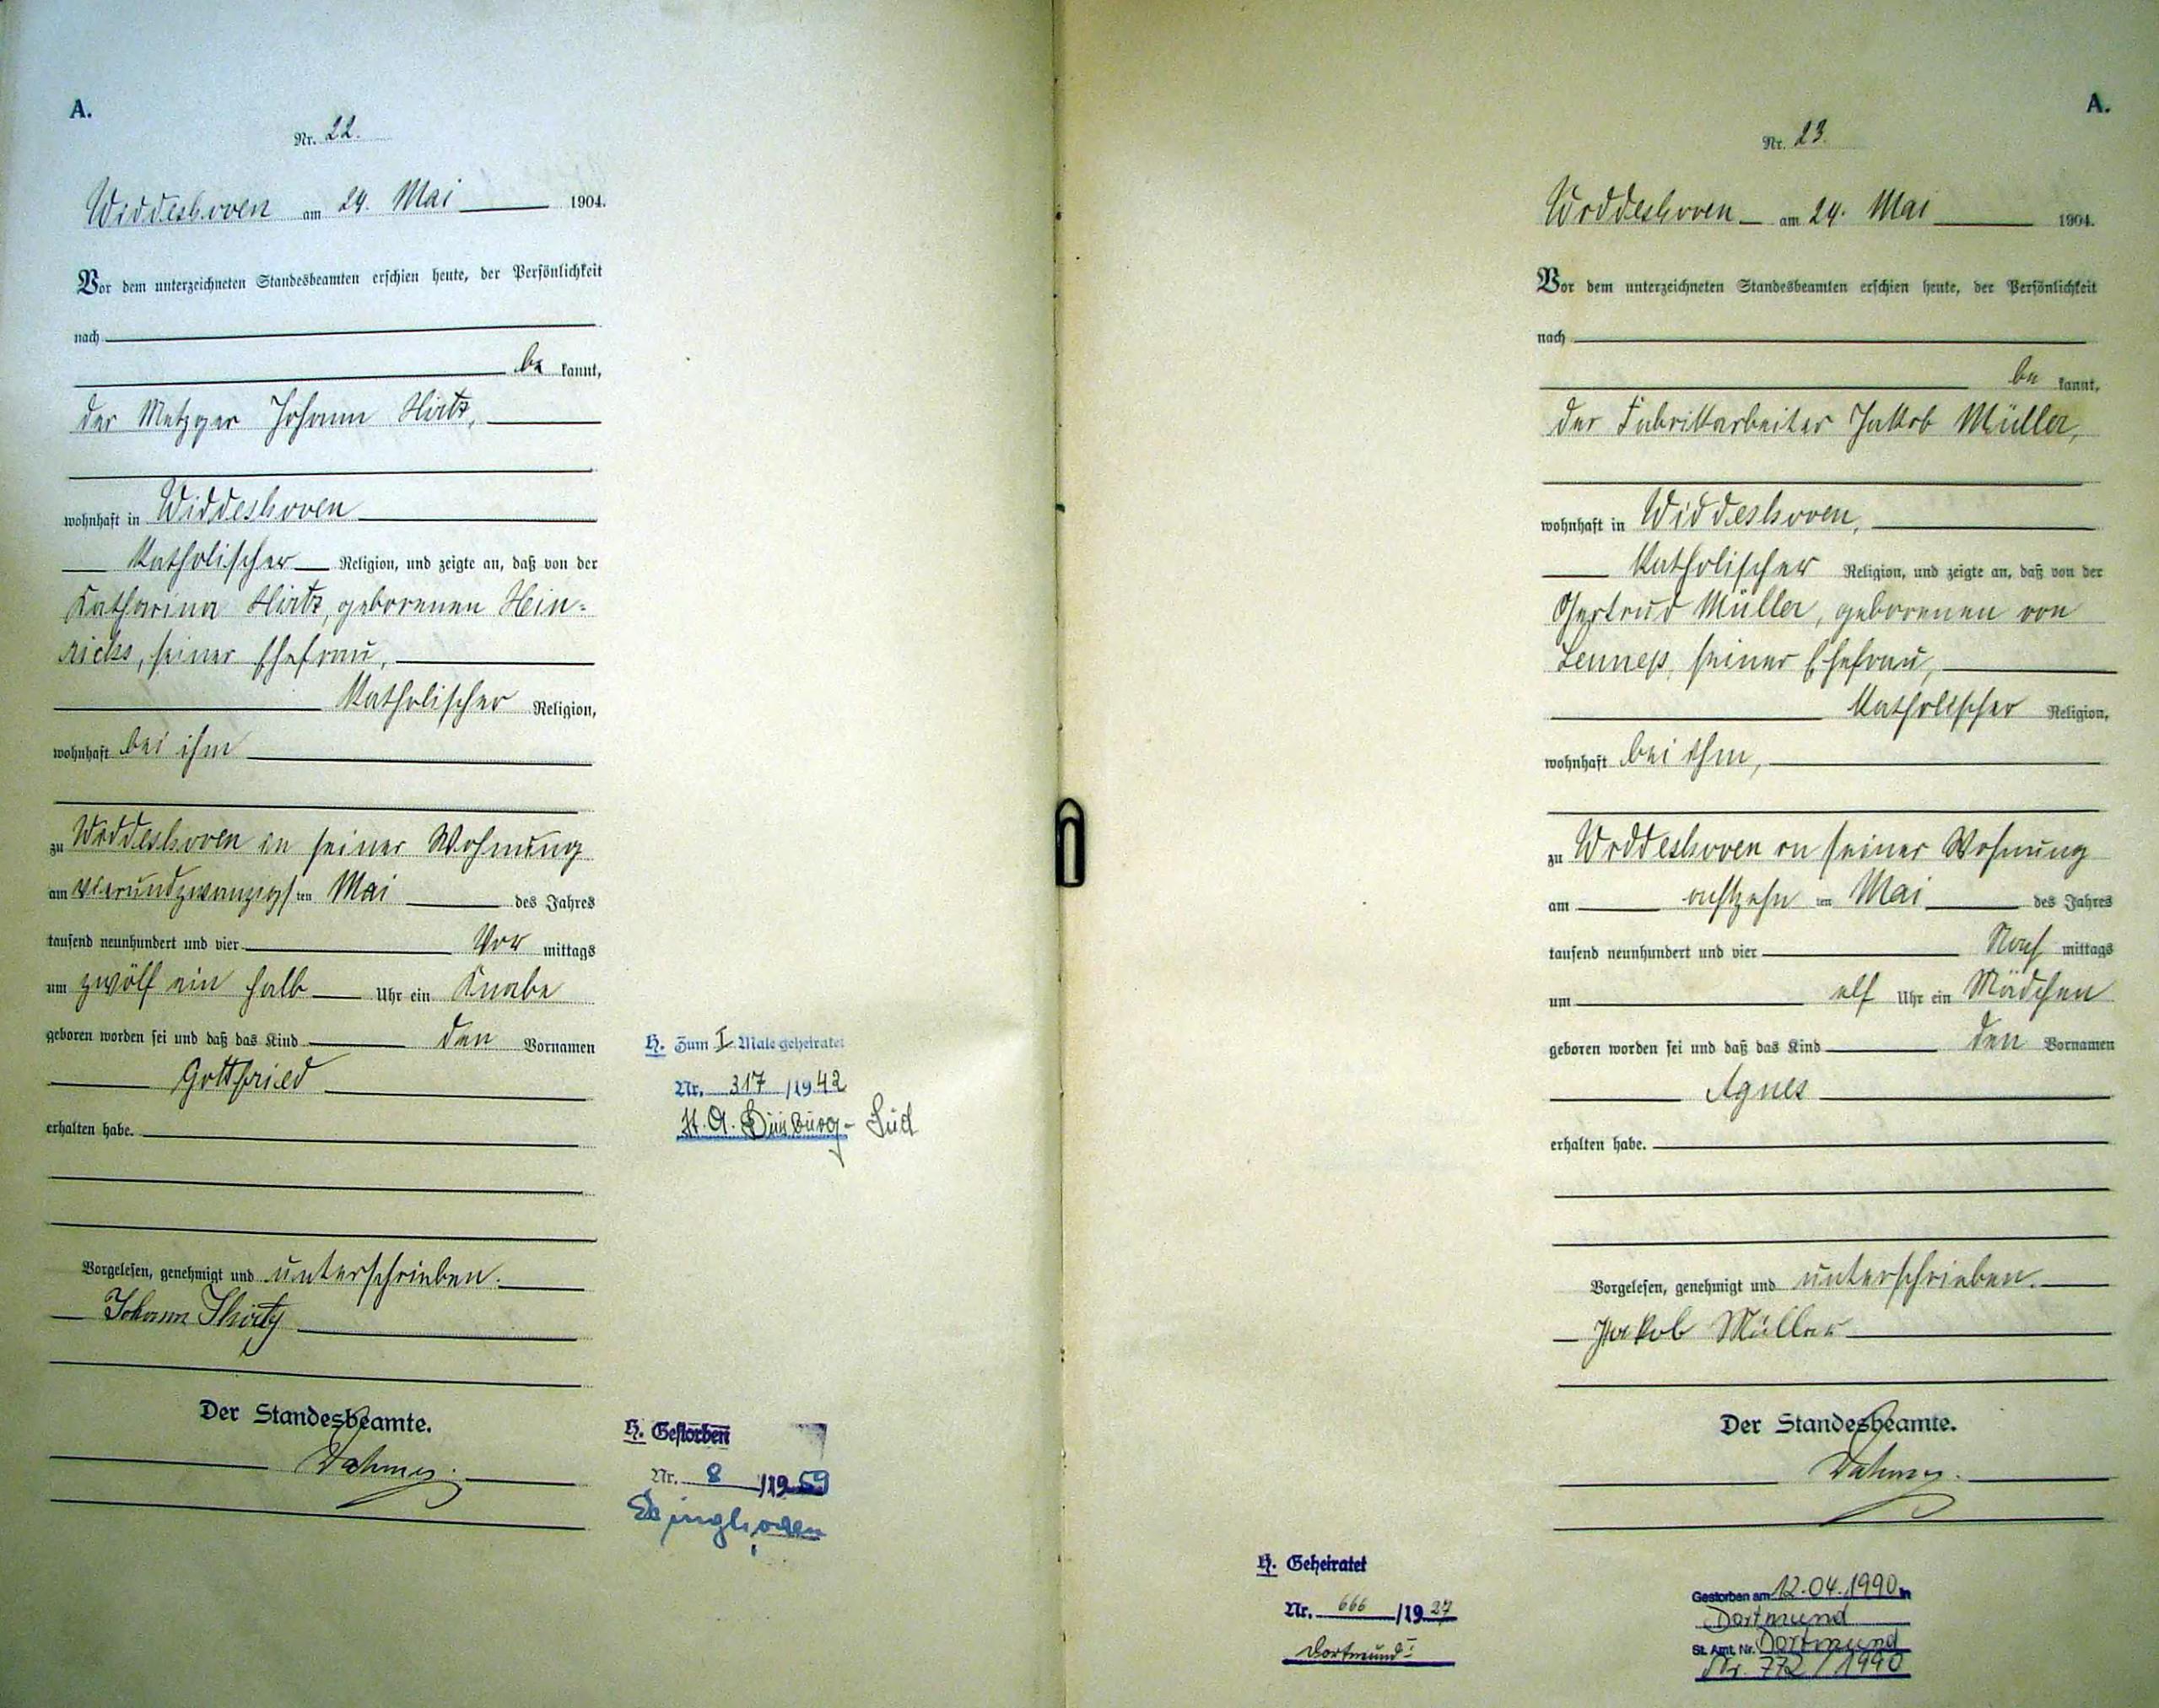 A.
Nr. 22.
Widdeshoven am 24. Mai 1904.
Vor dem unterzeichneten Standesbeamten erschien heute, der Persönlichkeit
nach
be kannt,
der Metzger Johann Hirtz,
wohnhaft in Widdeshoven
katholischer Religion, und zeigte an, daß von der
Katharina Hirtz, geborenen Hein=
richs, seiner Ehefrau,
katholischer Religion,
wohnhaft bei ihm
zu Widdeshoven in seiner Wohnung
am vierundzwanzigs ten Mai des Jahres
tausend neunhundert und vier Vor mittags
um zwölf ein halb Uhr ein Knabe
geboren worden sei und daß das Kind den Vornamen
Gottfried
erhalten habe.
Vorgelesen, genehmigt und unterschrieben.
Johann Hirtz
Der Standesbeamte.
H. Zum I Male geheiratet
Nr. 317 /1942
St. A. Duisburg- Süd
H. Gestorben
Nr. 8 /1959
A.
Nr. 23.
Widdeshoven am 24. Mai 1904.
Vor dem unterzeichneten Standesbeamten erschien heute, der Persönlichkeit
nach
be kannt,
der Fabrikarbeiter Jakob Müller,
wohnhaft in Widdeshoven,
katholischer Religion, und zeigte an, daß von der
Gertrud Müller, geborenen von
Lennep, seiner Ehefrau,
katholischer Religion,
wohnhaft bei ihm,
zu Widdeshoven in seiner Wohnung
am achtzehn ten Mai des Jahres
tausend neunhundert und vier Nach mittags
um elf Uhr ein Mädchen
geboren worden sei und daß das Kind den Vornamen
Agnes
erhalten habe.
Vorgelesen, genehmigt und unterschrieben.
Jakob Müller
Der Standesbeamte.
H. Geheiratet
Nr. 666 /1927
Dortmund I
Gestorben am 12.04.1990 in
Dortmund
St. Amt. Nr. Dortmund
Nr. 772/1990